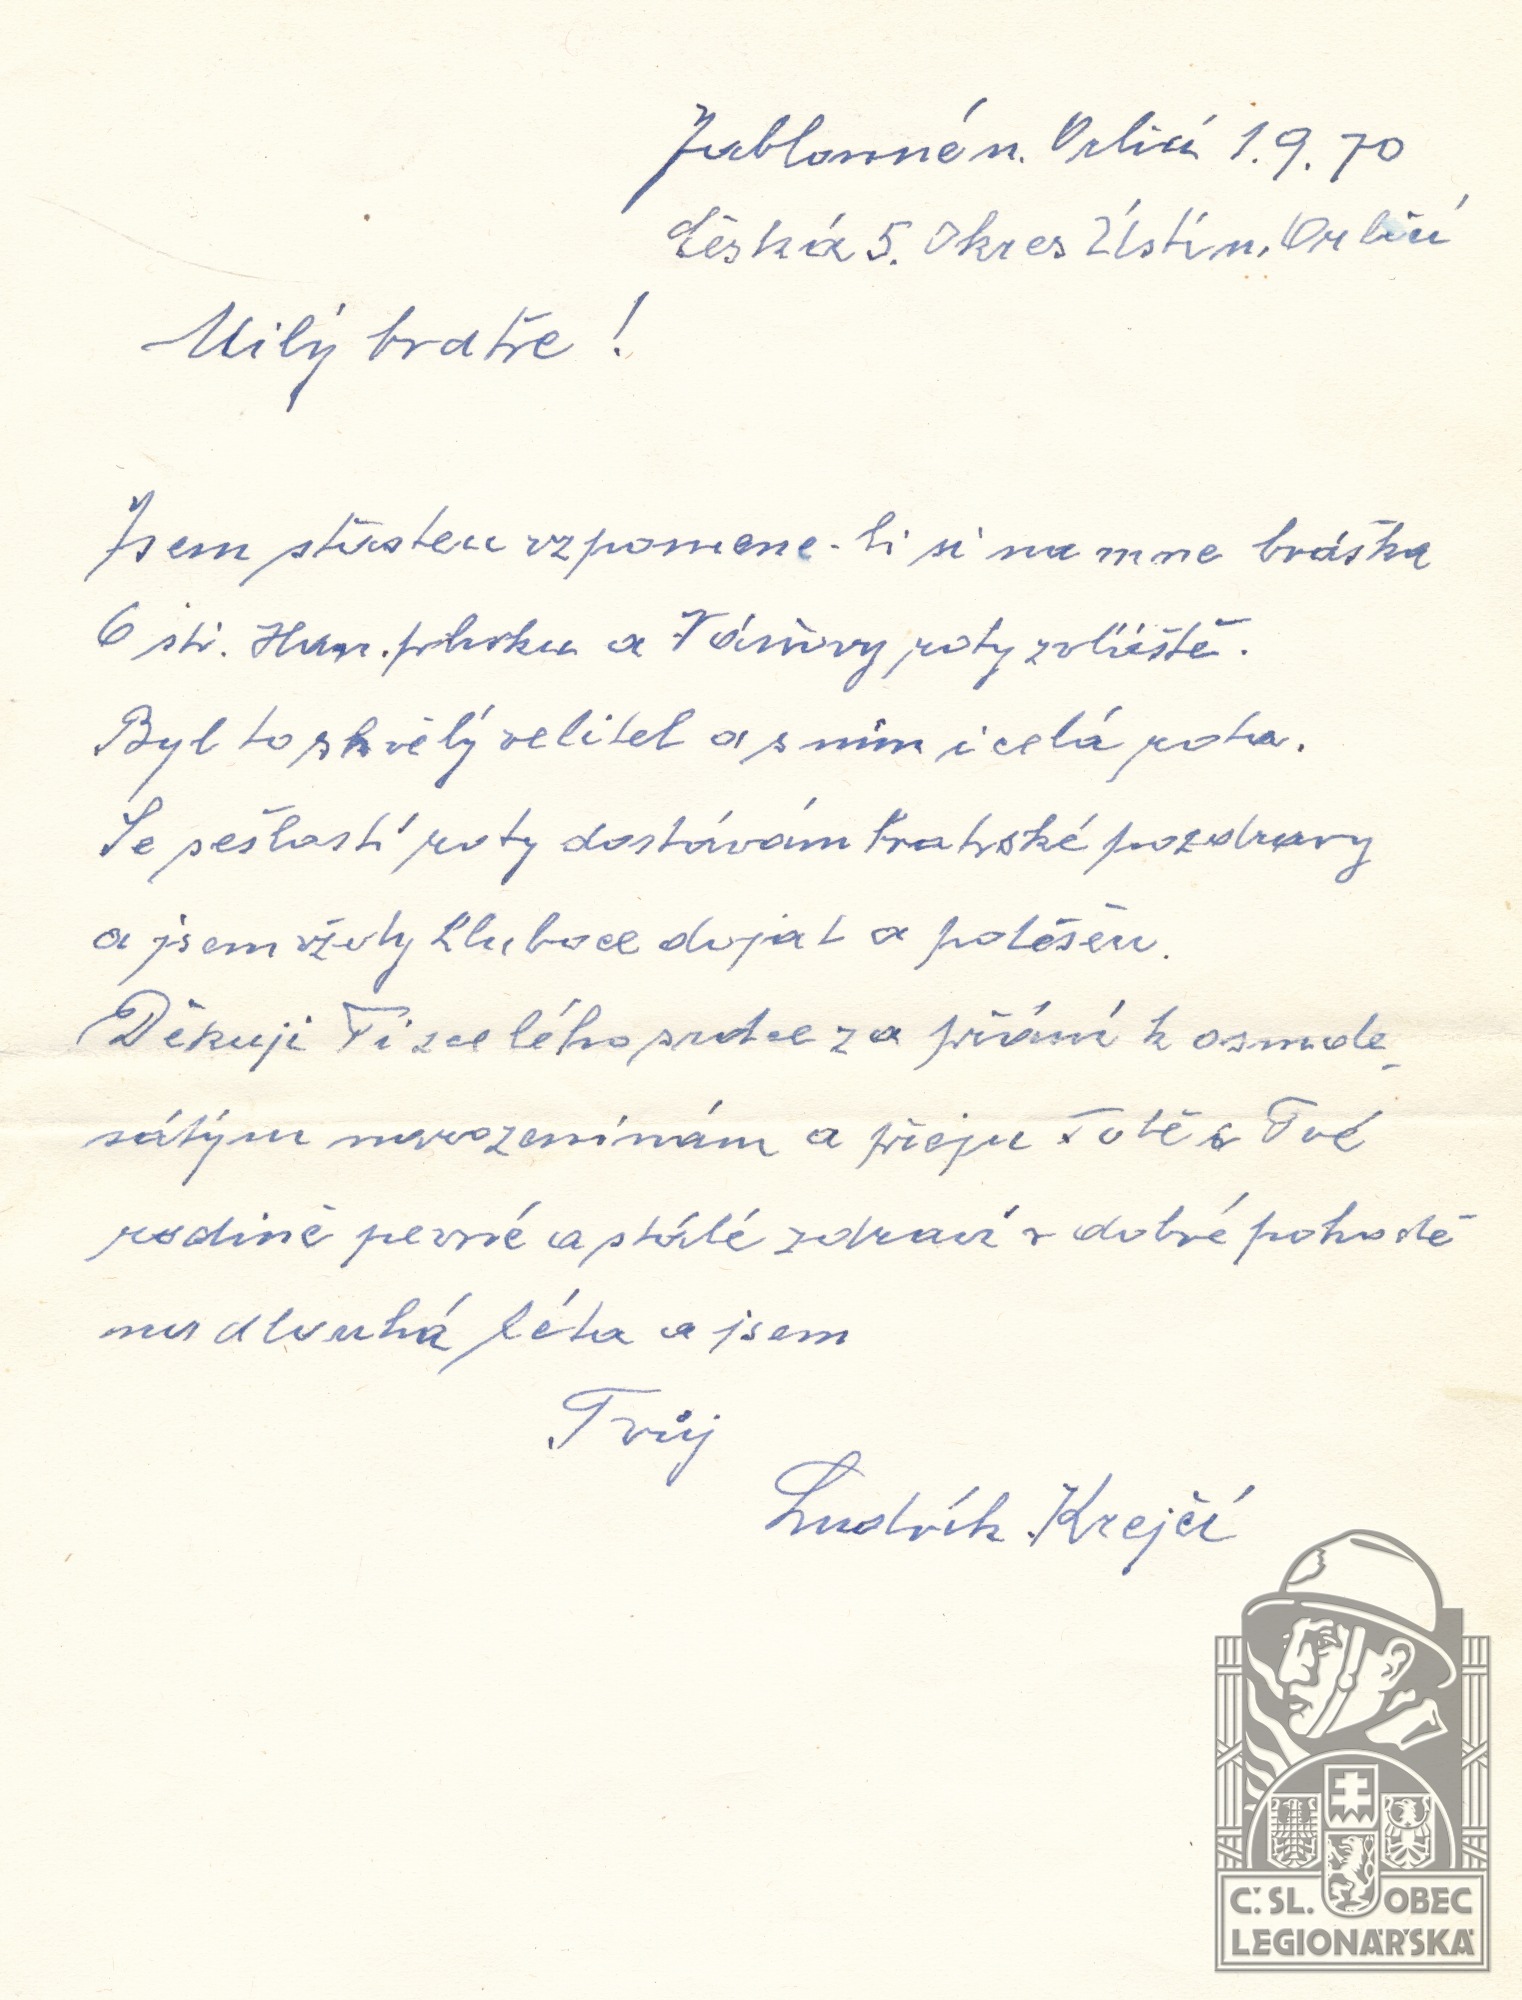 Jablonné n. Orlicí 1.9.70
Česká 5. Okres Ústí n. Orlicí
Milý bratře!
Jsem šťasten vzpomene-li si na mne bráška
6 stř. Han. pluku a Váňovy roty zvláště.
Byl to skvělý velitel a s ním i celá rota.
Se šesti roty dostávám bratrské pozdravy
a jsem vždy hluboce dojat a potěšen.
Děkuji Ti z celého srdce za přání k osmde-
sátým narozeninám a přeju Tobě a Tvé
rodině pevné a stálé zdraví v dobré pohodě
na dlouhá léta a jsem
Tvůj
Ludvík Krejčí
Č.SL. OBEC
LEGIONÁŘSKÁ